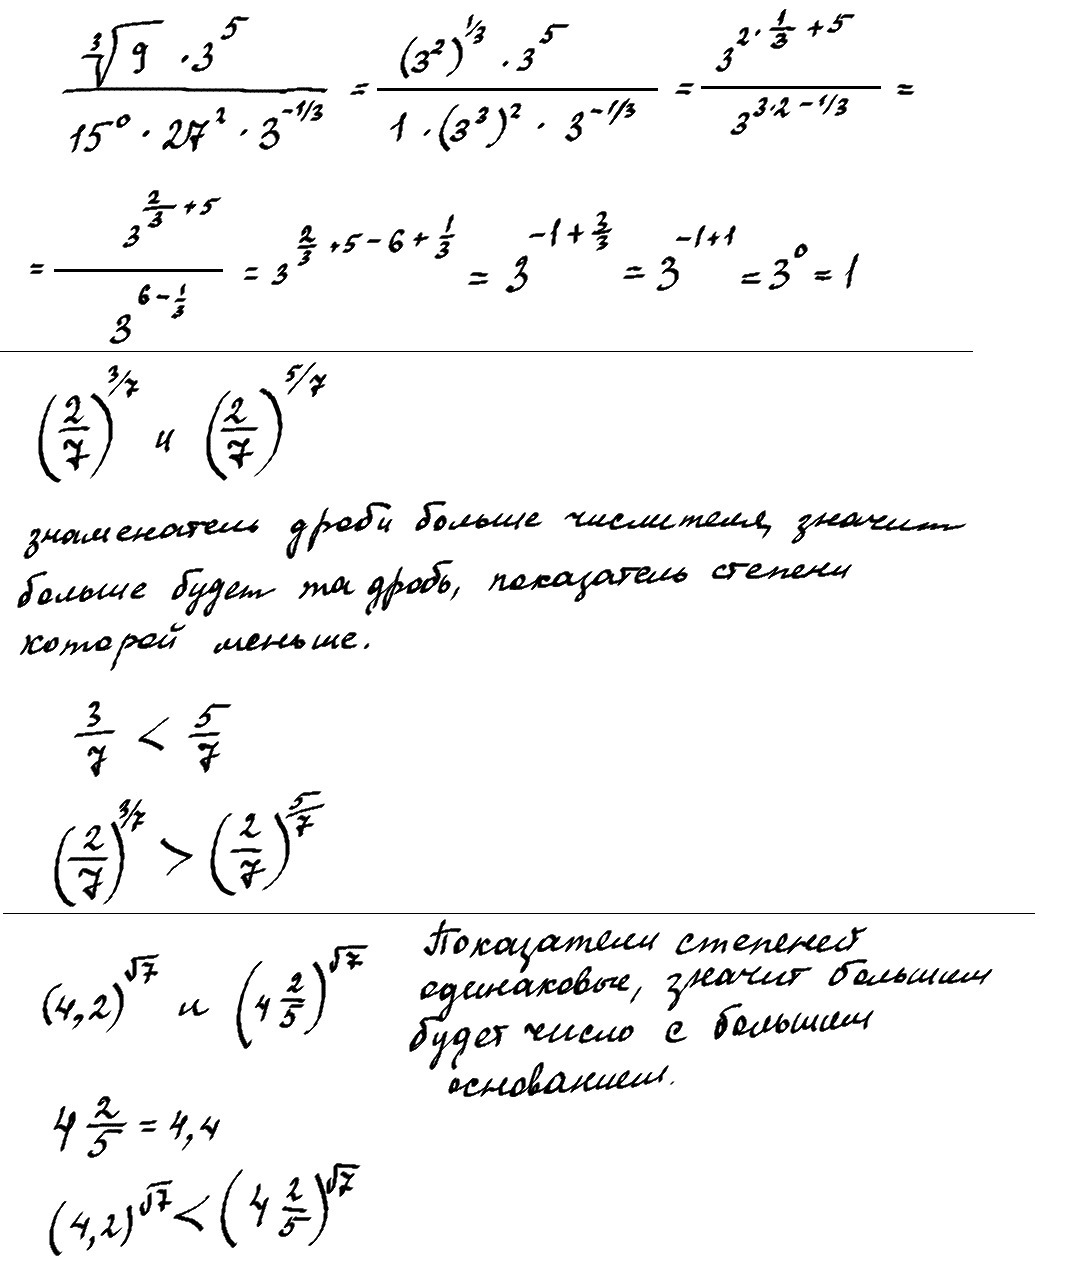 ∛9 · 3^5 / (15^0 · 27^2 · 3^(-1/3)) = (3^2)^(1/3) · 3^5 / (1 · (3^3)^2 · 3^(-1/3)) = 3^(2·1/3+5) / 3^(3·2-1/3) =
= 3^(2/3+5) / 3^(6-1/3) = 3^(2/3+5-6+1/3) = 3^(-1+3/3) = 3^(-1+1) = 3^0 = 1
(2/7)^(3/7) и (2/7)^(5/7)
знаменатель дроби больше числителя, значит
больше будет та дробь, показатель степени
которой меньше.
3/7 < 5/7
(2/7)^(3/7) > (2/7)^(5/7)
(4,2)^√7 и (4 2/5)^√7
Показатели степеней
одинаковые, значит большим
будет число с большим
основанием.
4 2/5 = 4,4
(4,2)^√7 < (4 2/5)^√7